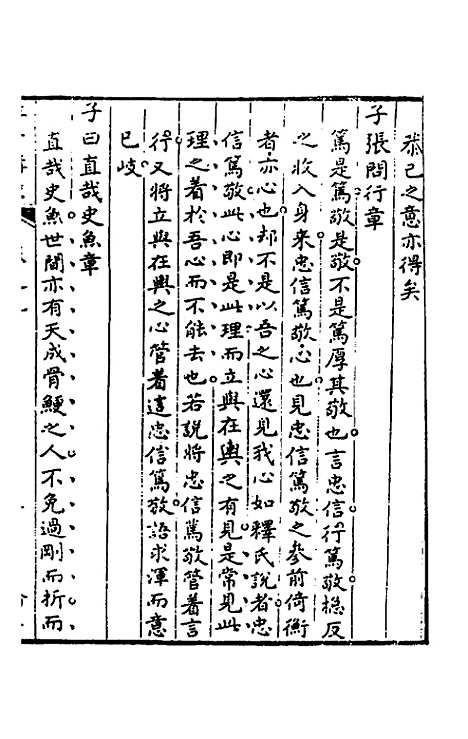 恭已之意亦得矣
子張問行章
篤是篤敬是敬不是篤厚其敬也言忠信行篤敬總反
之收入身來忠信篤敬心也見忠信篤敬之參前倚衡
者亦心也却不是以吾之心還見我心如釋氏說者忠
信篤敬此心即是此理而立與在輿之有見是常見此
理之著於吾心而不能去也若說將忠信篤敬管著言
行又將立與在輿之心管着這忠信篤敬語求渾而意
已岐
子曰直哉史魚章
直哉史魚世間亦有天成骨鯁之人不免過剛而折而